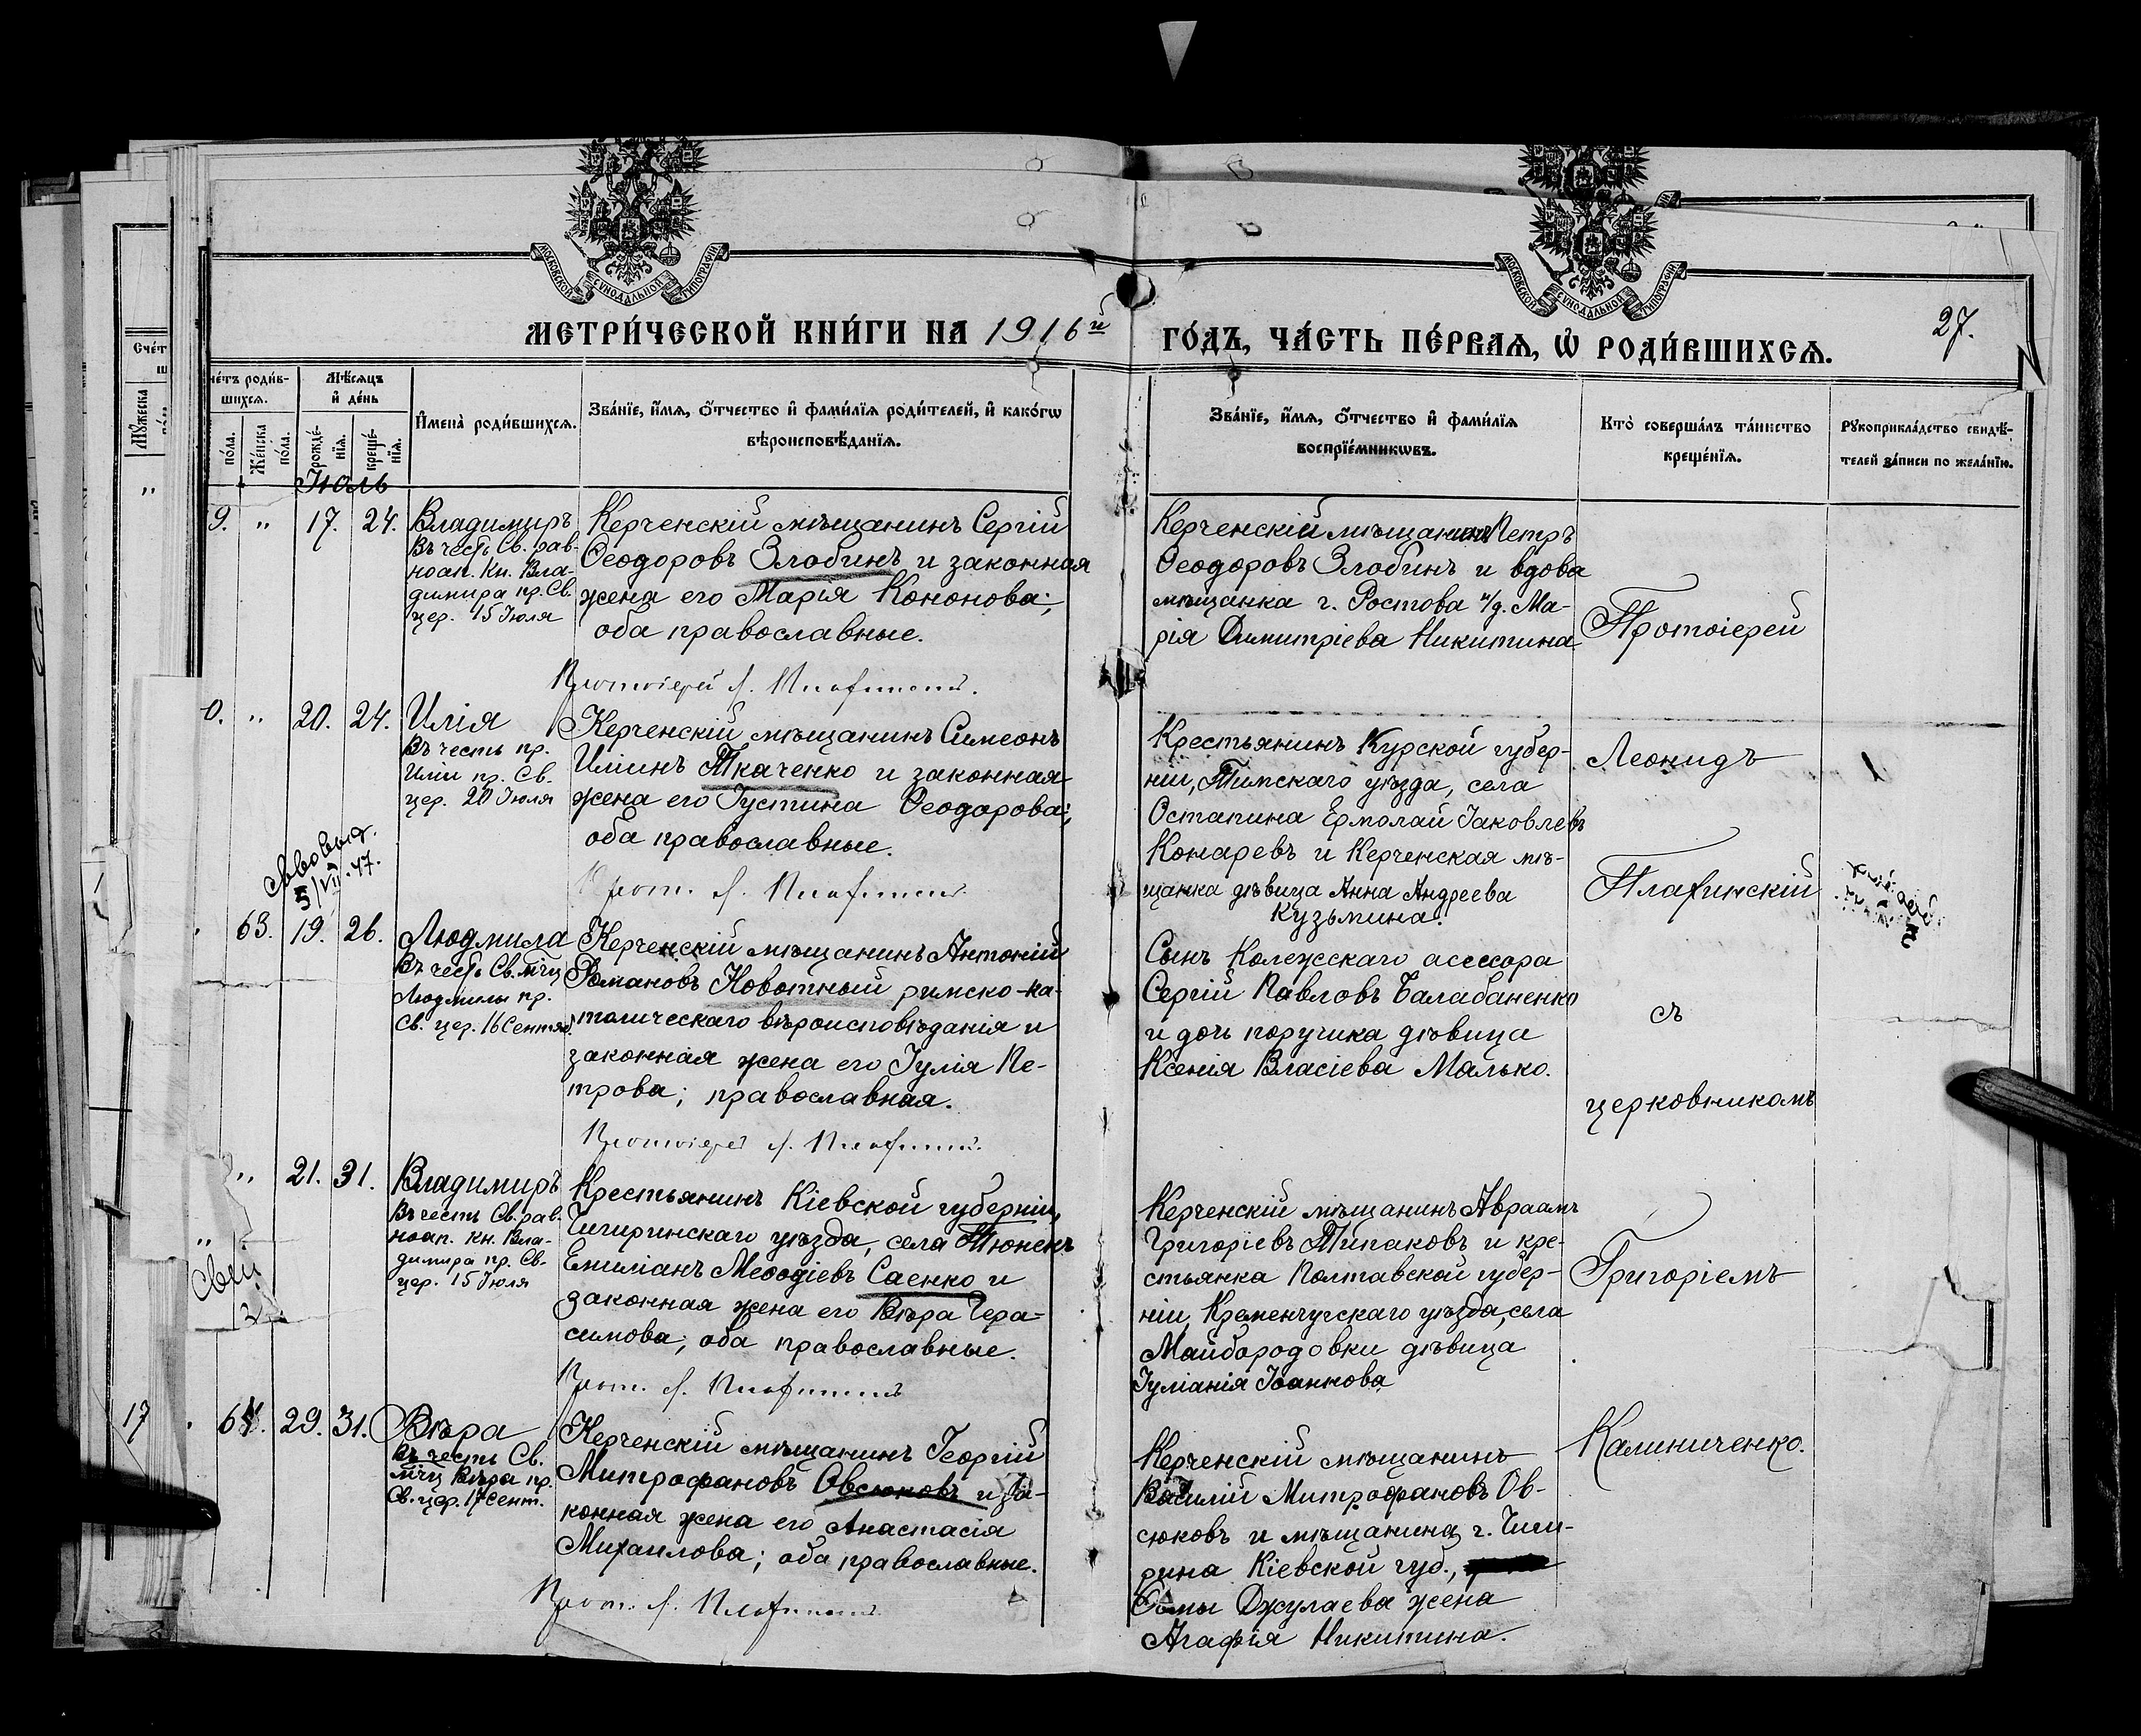 МОСКОВСКОЙ СѴНОДАЛЬНОЙ ТИПОГРАФІИ
МОСКОВСКОЙ СѴНОДАЛЬНОЙ ТИПОГРАФІИ
МЕТРИ́ЧЕСКОЙ КНИ́ГИ НА 1916й ГО́ДЪ, ЧА́СТЬ ПЕ́РВАѦ, Ѡ҆ РОДИ́ВШИХСѦ.
27.
Сче́т
Мꙋ́жеска
че́тъ роди́в-
шихсѧ.
по́ла.
Же́нска
по́ла.
Мѣ́сѧцъ
и҆ де́нь
рожде́-
нїѧ.
креще́-
нїѧ.
И҆мена̀ роди́вшихсѧ.
Зва́нїе, и҆́мѧ, ѻ҆́тчество и҆ фами́лїѧ роди́телей, и҆ како́гѡ
вѣроисповѣ́данїѧ.
Зва́нїе, и҆́мѧ, ѻ҆́тчество и҆ фами́лїѧ
воспрїе́мникѡвъ.
Кто̀ соверша́лъ та́инство
креще́нїѧ.
Рꙋкоприкла́дство свидѣ́-
телей за́писи по жела́нїю.
Іюль
9. „ 17. 24.
Владимиръ
Въ честь Св. рав-
ноап. Кн. Вла-
димира пр. Св.
цер. 15 Іюля
Керченскій мѣщанинъ Сергій
Ѳеодоровъ Злобинъ и законная
жена его Марія Кононова;
оба православные.
Протоіерей
Керченскій мѣщанинъ Петръ
Ѳеодоровъ Злобинъ и вдова
мѣщанка г. Ростова н/д. Ма-
рія Димитріева Никитина
0. „ 20. 24.
Илія
Въ честь пр.
Иліи пр. Св.
цер. 20 Іюля
Керченскій мѣщанинъ Симеонъ
Иліинъ Ткаченко и законная
жена его Іустина Ѳеодорова;
оба православные.
Прот.
Крестьянинъ Курской губер-
ніи, Тимскаго уѣзда, села
Остапина Ермолай Іаковлевъ
Конаревъ и Керченская мѣ-
щанка дѣвица Анна Андреева
Кузьмина.
5/VII.47.
63. 19. 26.
Людмила
Въ честь Св. мчц
Людмилы пр.
Св. цер. 16 Сентяб.
Керченскій мѣщанинъ Антоній
Романовъ Новотный римско-ка-
толическаго вѣроисповѣданія и
законная жена его Іулія Пе-
трова; православная.
Протоіерей
Сынъ Колежскаго асессора
Сергій Павловъ Балабаненко
и дочь поручика дѣвица
Ксенія Власіева Малько.
„ 21. 31.
Владимиръ
Въ честь Св. рав.
ноап. Кн. Вла-
димира пр. Св.
цер. 15 Іюля
Крестьянинъ Кіевской губерніи,
Чигиринскаго уѣзда, села Тюнекъ
Емиліанъ Меѳодіевъ Саенко и
законная жена его Вѣра Гера-
симова; оба православные.
Прот.
Керченскій мѣщанинъ Авраамъ
Григоріевъ Типаковъ и кре-
стьянка Полтавской губер-
ніи, Кременчугскаго уѣзда, села
Майбородовки дѣвица
Іуліанія Іоаннова
17
64. 29. 31.
Вѣра
Въ честь Св.
мчц Вѣра пр.
Св. цер. 17 Сент.
Керченскій мѣщанинъ Георгій
Митрофановъ Овсюковъ и за-
конная жена его Анастасія
Михаилова; оба православные.
Прот.
Керченскій мѣщанинъ
Василій Митрофановъ Ов-
сюковъ и мѣщанина г. Чиги-
рина Кіевской губ.,
Ѳомы Джулаева жена
Агафія Никитина.
Протоіерей
Леонидъ
Плафинскій
съ
церковникомъ
Григоріемъ
Калиниченко.